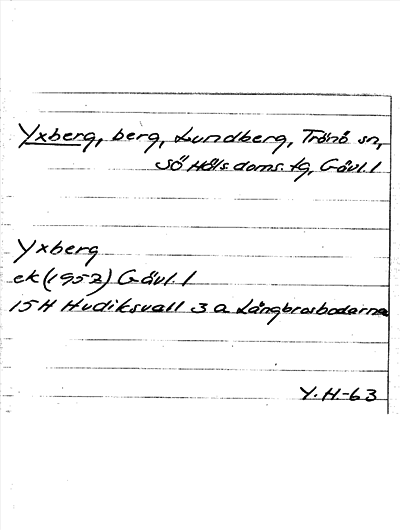 Yxberg, berg, Lundberg, Trönö sn,
Sö Häls. doms. tg, Gävl. l
Yxberg
ek (1952) Gävl. l
15H Hudiksvall 3 a Långbrosbodarna
Y. H.-63